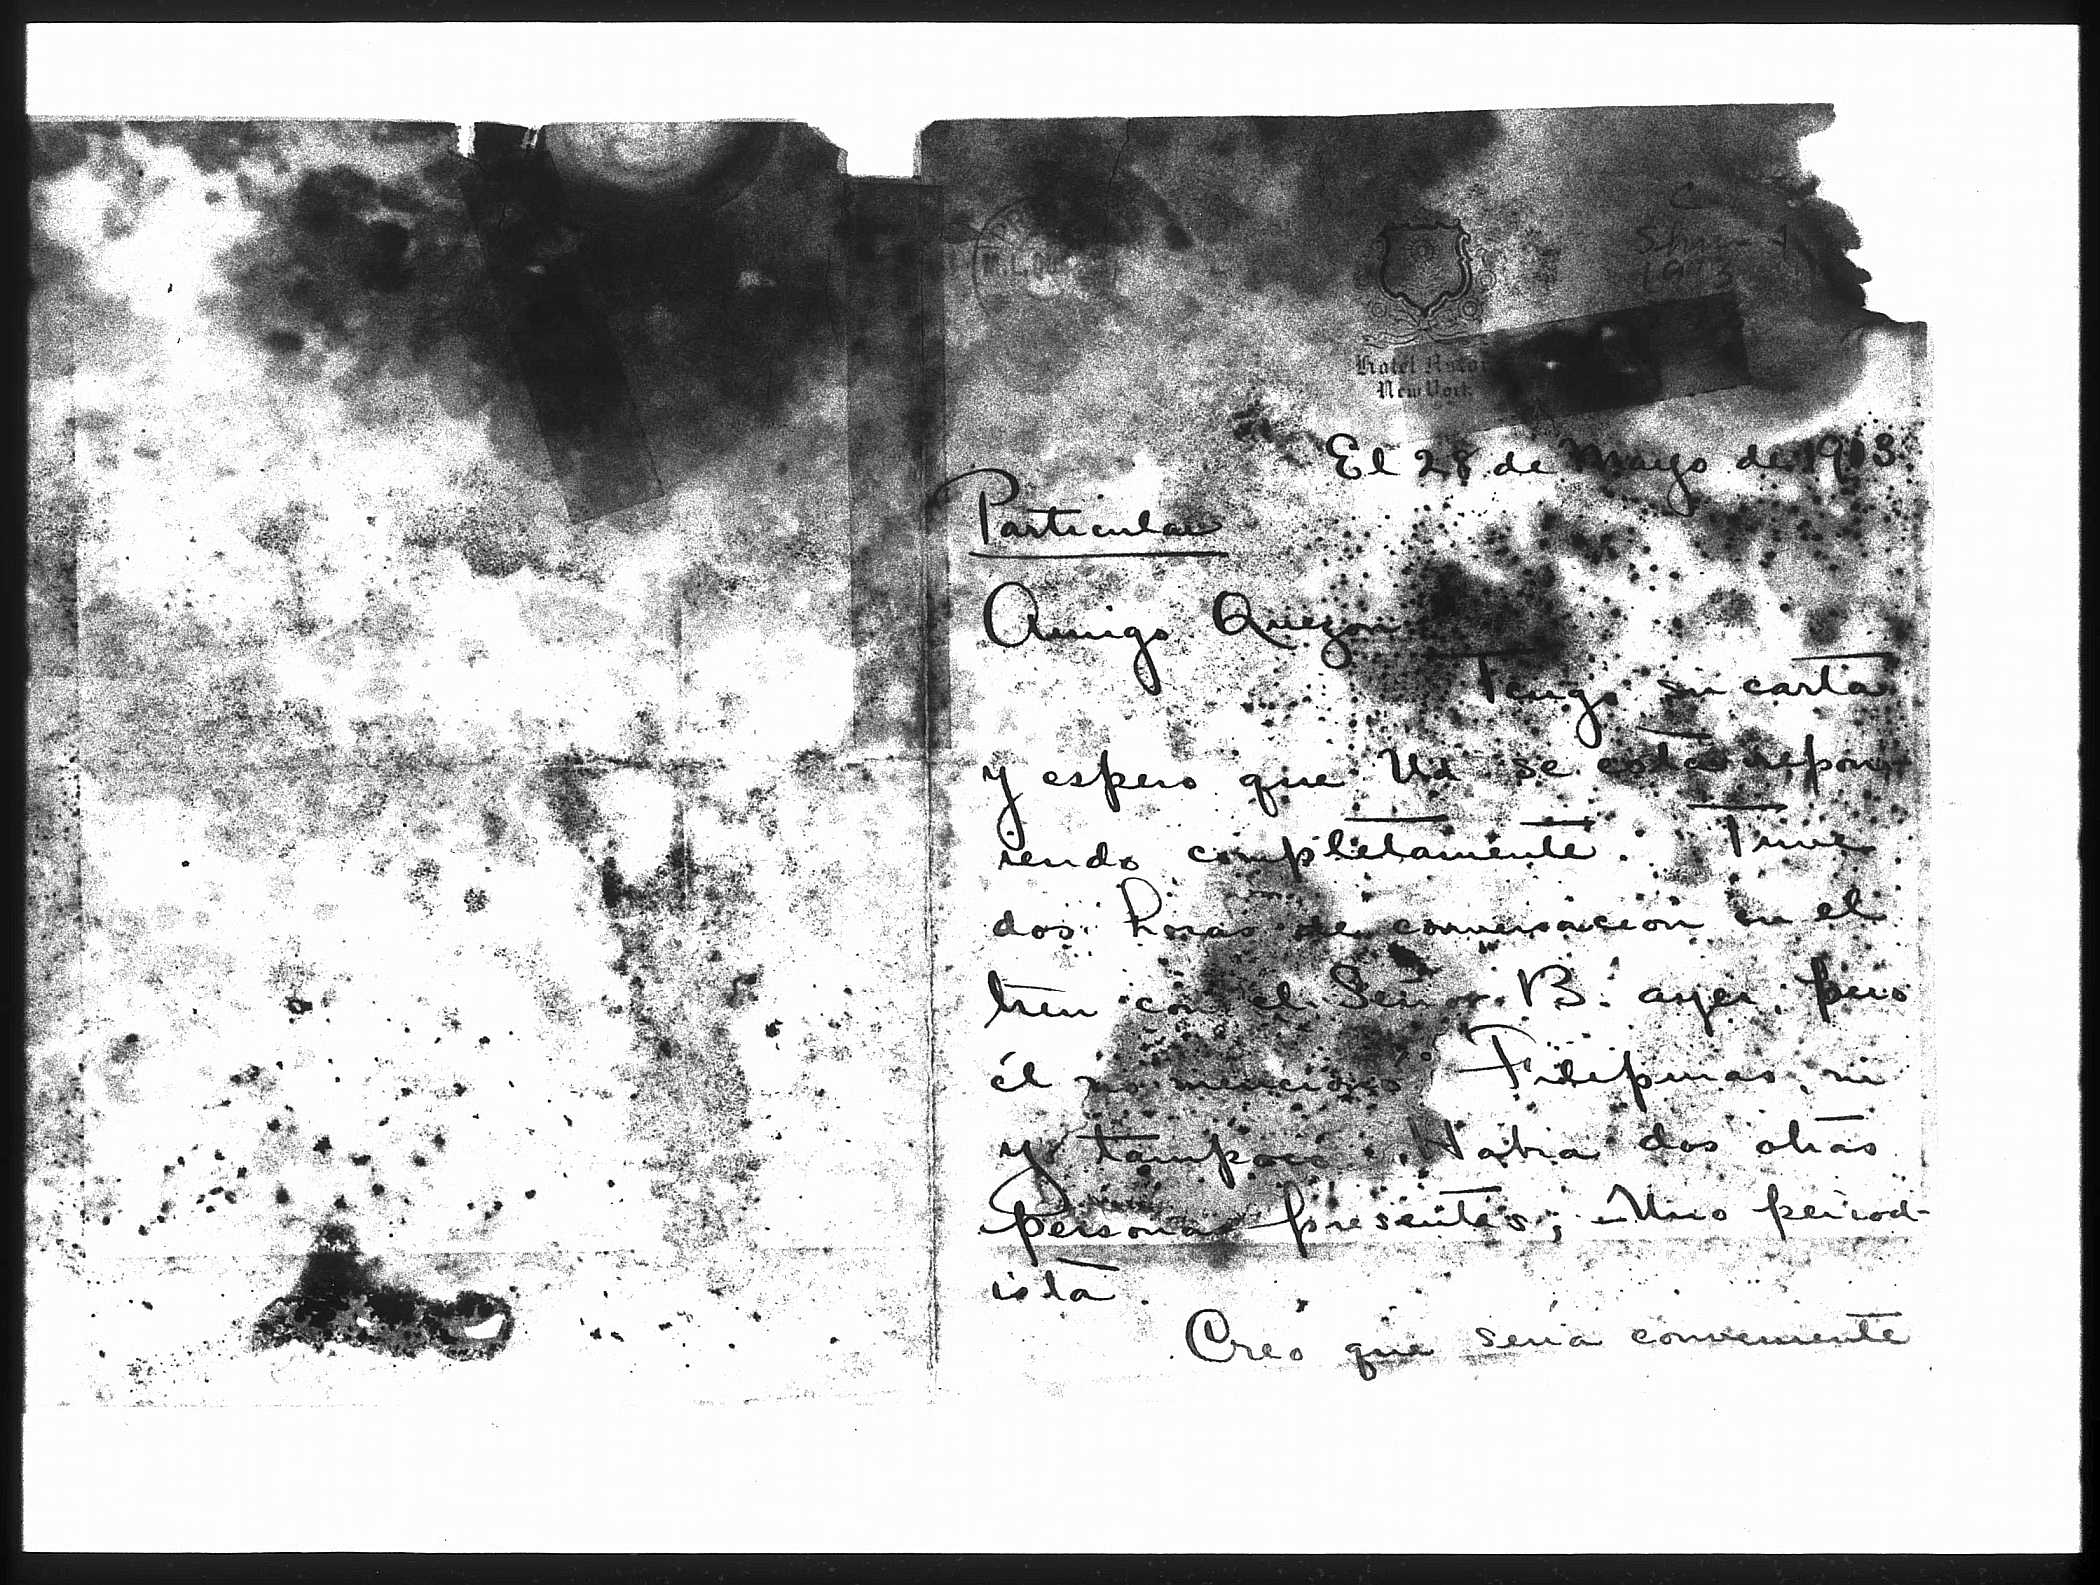 1913
Hotel Astor
New York
El 28 de Mayo de 1913.
Particular
Amigo Quezon
Tengo su carta
y espero que Ud se está repon-
iendo completamente. Tuve
dos horas de conversacion en el
tren con el Señor B. ayer, pero
él no mencionó Filipinas, ni
yo tampoco. Habia dos otras
personas presentes; Uno period-
ista.
Creo que seria conveniente